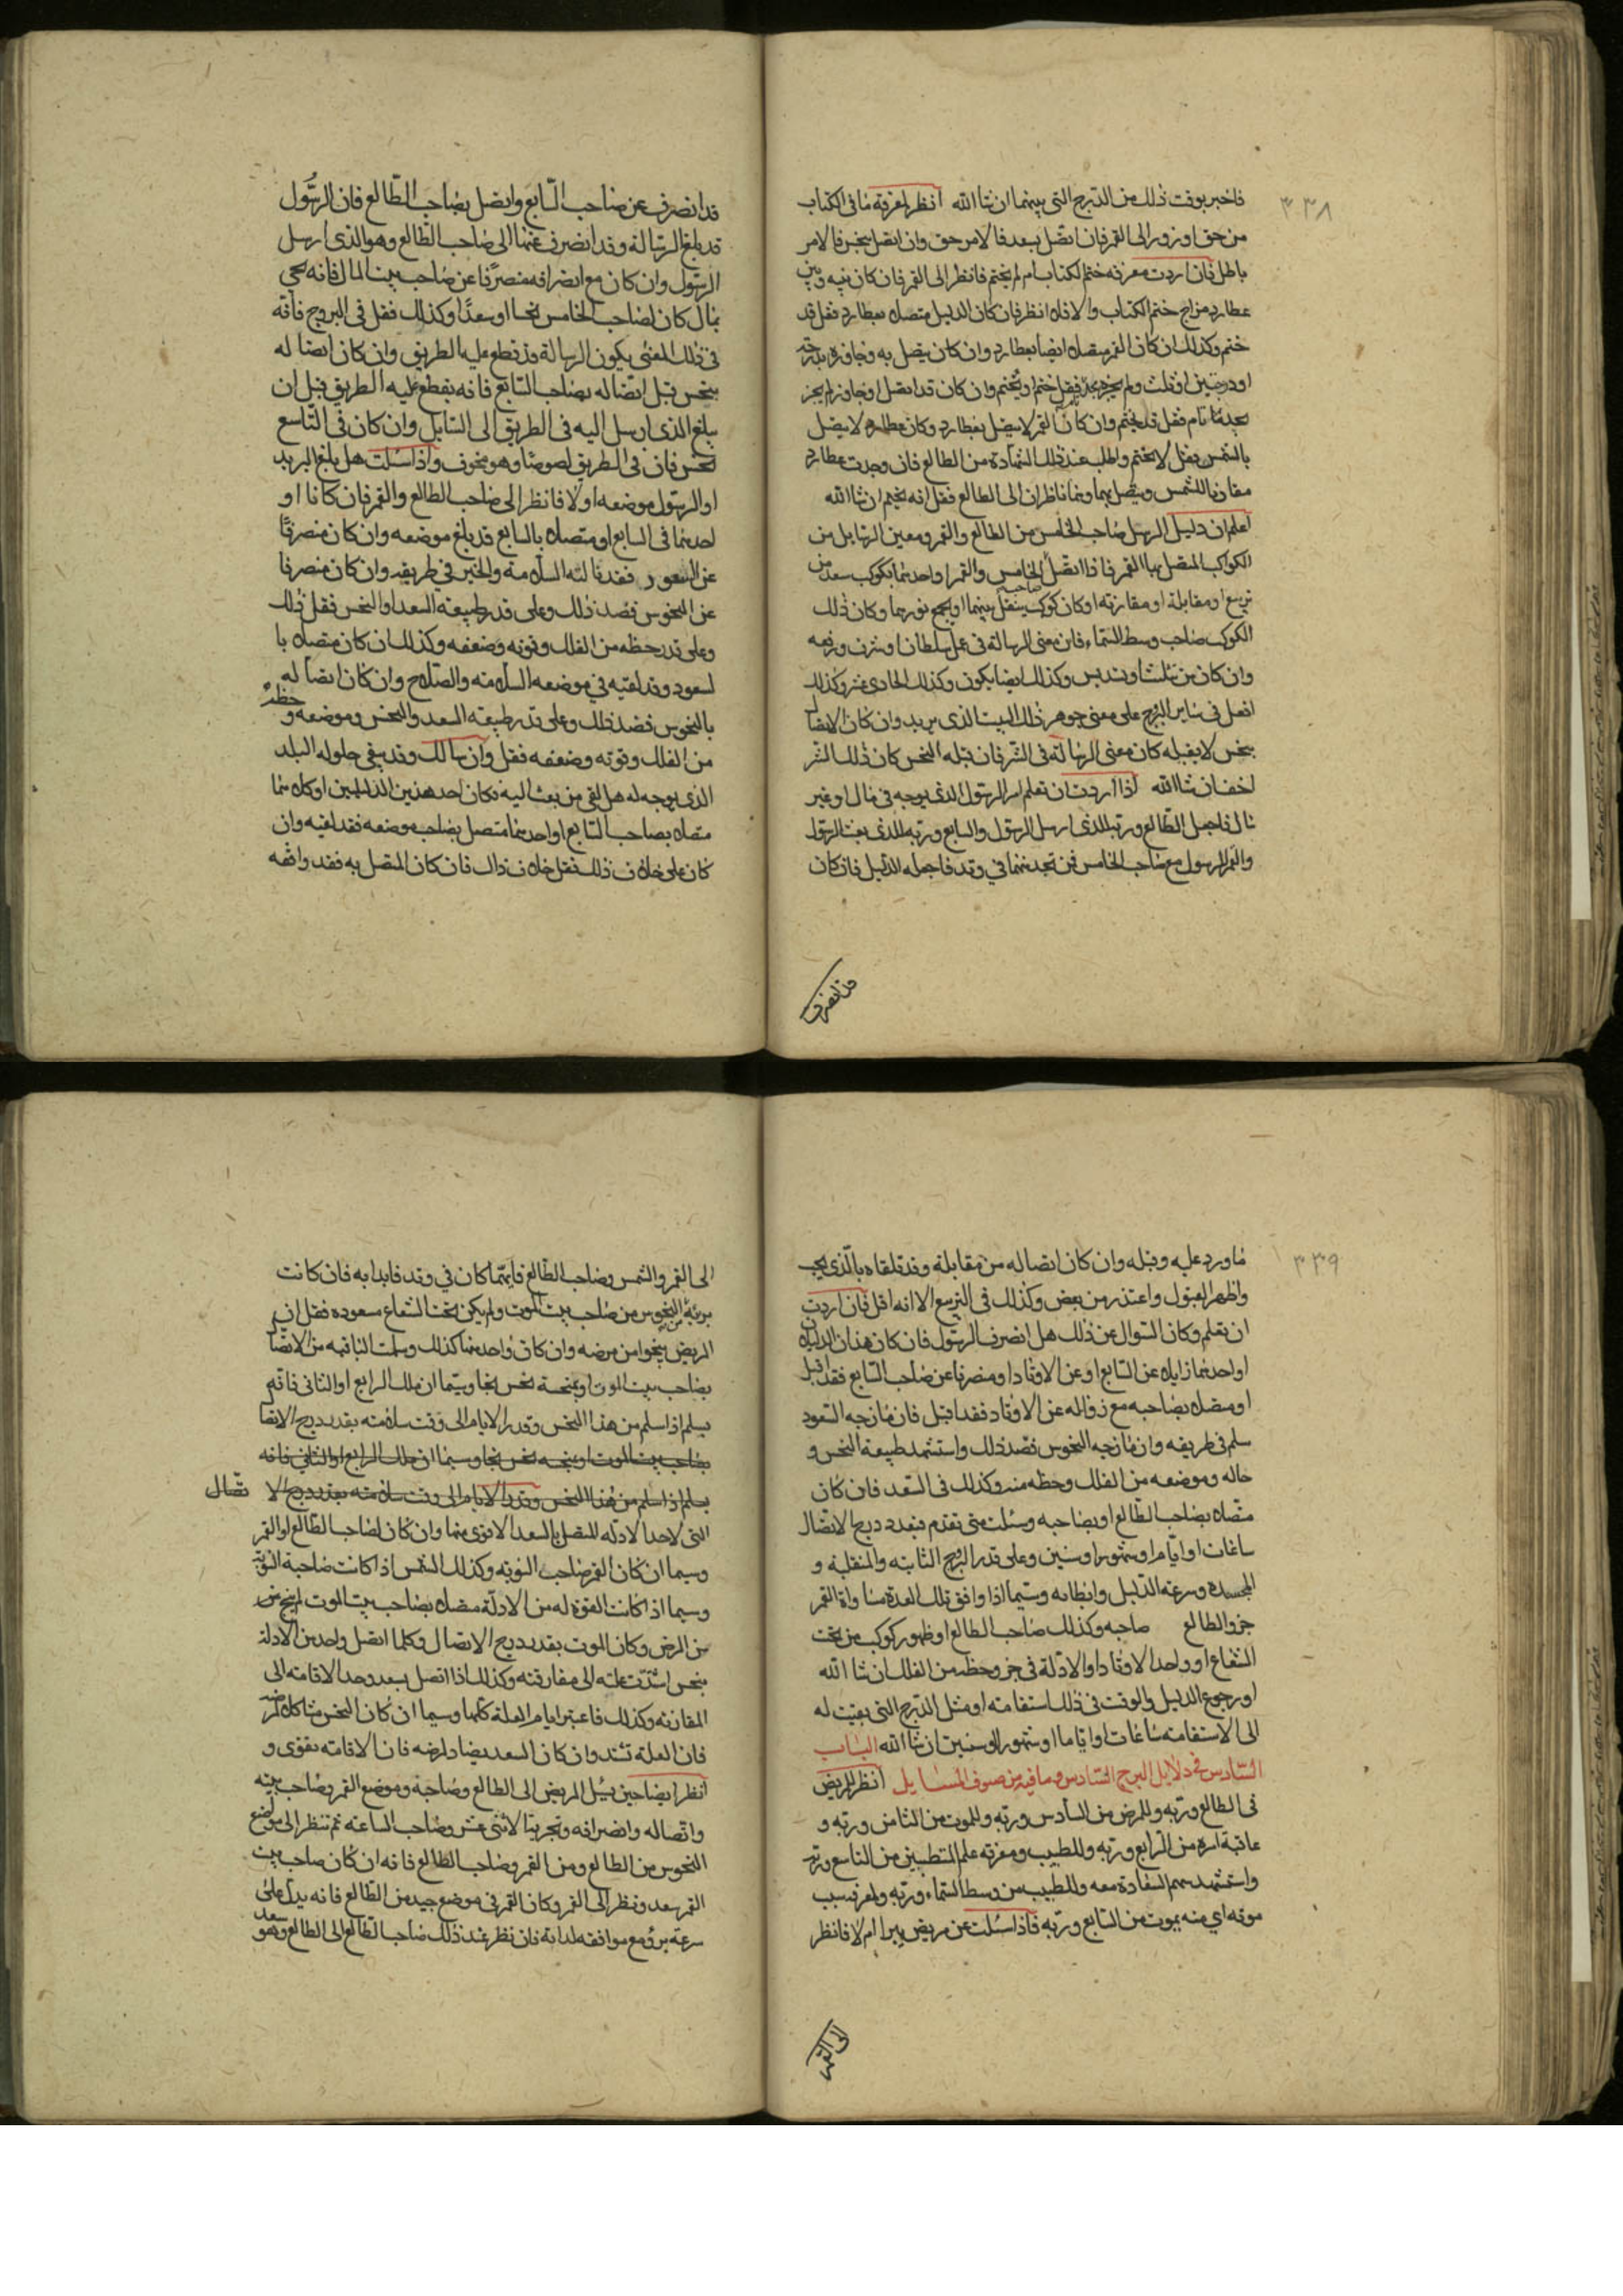 ٣٣٨
فاخبر بوقت ذلك من الدرج التى بينهما ان شا الله انظر لمعرفة ما فى الكتاب
من حق او زور الى القمر فان اتصل بسعد فالامر حق وان اتصل بنحس فالامر
باطل فان اردت معرفه ختم الكتاب ام لم يختم فانظر الى القمر فان كان بينه وبين
عطارد مزاج ختم الكتاب والا فلا انظر فان كان الدليل متصلا بعطارد فقل قد
ختم وكذلك ان كان القمر متصلا ايضا بعطارد وان كان يتصل به وجاوزه بدرجة
او درجتين او ثلث ولم فقل ختم او يختم وان كان قد اتصل او جاوز لم
تام فقل قد يختم وان كان القمر لا يتصل بعطارد وكان عطارد لا يتصل
بالشمس فقل لا يختم واطلب عند ذلك الشهادة من الطالع فان وجدت عطارد
مقارنا للشمس ويتصل بهما وهما ناظران الى الطالع فقل انه يختم ان شا الله
اعلم ان دليل الرسل صاحب الخامس من الطالع والقمر ومعين الرسايل من
الكواكب المتصل بها القمر فاذا اتصل صاحب الخامس والقمر او احدهما بكوكب سعد من
تربيع او مقابلة او مقارنته او كان كوكب ينقل بينهما او يجمع نورهما وكان ذلك
الكوكب صاحب وسط السماء فان معنى الرسالة فى عمل سلطان او شرف ورفعه
وان كان من تثليث او تسديس وكذلك ايضا يكون وكذلك الحادى عشر وكذلك
افعل فى ساير البرج على معنى جوهر ذلك البيت الذى يريد وان كان الاتصال
بنحس لا يقبله كان معنى الرسالة فى الشر فان قبله النحس كان ذلك الشر
اخف ان شا الله اذا اردت ان تعلم امر الرسول الذى يوجه فى مال او غير
مال فاجعل الطالع وربه للذى ارسل الرسول والسابع وربه للذى بعث الرسول
والقمر للرسول مع صاحب الخامس فمن تجد منهما في وتد فاجعله الدليل فان كان
قد انصرف
قد انصرف عن صاحب السابع واتصل بصاحب الطالع فان الرسول
قد بلغ الرسالة وقد انصرف عنهما الى صاحب الطالع وهو الذى ارسل
الرسول وان كان مع انصرافه منصرفا عن صاحب بيت المال فانه يجي
بمال كان لصاحب الخامس نحسا او سعدا وكذلك فقل فى البروج فانه
فى ذلك المعنى يكون الرسالة قد قطع عليه الطريق وان كان اتصاله
بنحس قبل اتصاله بصاحب السابع فانه يقطع عليه الطريق قبل ان
يبلغ الذى ارسل اليه فى الطريق الى السايل وان كان فى التاسع
نحس فان فى الطريق لصوصا وهو مخوف واذا سئلت هل بلغ البريد
او الرسول موضعه او لا فانظر الى صاحب الطالع والقمر فان كانا او
احدهما فى السابع او متصلا بالسابع قد بلغ موضعه وان كان منصرفا
عن السعود فقد نالته السلامة والخير في طريقه وان كان منصرفا
عن النحوس فضد ذلك وعلى قدر طبيعته السعد او النحس فقل ذلك
وعلى قدر حظه من الفلك وقوته وضعفه وكذلك ان كان متصلا با
لسعود وقد لقيه في موضعه السلامه والصلاح وان كان اتصاله
بالنحوس فضد ذلك وعلى قدر طبيعته السعد والنحس وموضعه وحظه
من الفلك وقوته وضعفه فقل وان سالك وقد بقى حلوله البلد
الذى يوجه له هل لقى من بعث اليه فكان احد هذين الدليلين او كلاهما
متصلا بصاحب السابع او احدهما متصل بصاحب موضعه فقد لقيه وان
كان على خلاف ذلك فقل خلاف ذاك فان كان المتصل به فقد وافقه
٣٣٩
ما ورد عليه وقبله وان كان اتصاله من مقابلة وقد تلقاه بالذى يجب
واظهر القبول واعتذر من بعض وكذلك فى التربيع الا انه اقل فان اردت
ان تعلم وكان السوال عن ذلك هل انصرف الرسول فان كان هذان الدليلان
او احدهما زايلا عن السابع او عن الاوتاد او منصرفا عن صاحب السابع فقد اقبل
او متصلا بصاحبه مع زواله عن الاوتاد فقد اقبل فان مازجه السعود
سلم فى طريقه وان مازجه النحوس فضد ذلك واستشهد طبيعة النحس و
حاله وموضعه من الفلك وحظه منه وكذلك فى السعد فان كان
متصلا بصاحب الطالع او بصاحبه وسئلت متى تقدم فبعدد درج الاتصال
ساعات او اياما او شهورا او سنين وعلى قدر البروج الثابته والمنقلبة و
المجسده وسرعة الدليل وابطائه وسيما اذا وافق تلك العدة مساواة القمر
جزو الطالع صاحبه وكذلك صاحب الطالع او ظهور كوكب من تحت
الشعاع او واحد الاوتاد او الادلة فى جزو حظه من الفلك ان شا الله
او رجوع الدليل والوقت فى ذلك استقامته او مثل الدرج التى بقيت له
الى الاستقامته ساعات او اياما او شهورا او سنين ان شا الله الباب
السادس فى دلايل البرج السادس وما فيه من صنوف المسايل انظر للمريض
فى الطالع وربه وللمرض من السادس وربه وللموت من الثامن وربه و
عاقبة امره من الرابع وربه وللطبيب ومعرفته علم المتطببين من التاسع وربه
واستشهد سهم السعادة معه وللطبيب من وسط السماء وربه ولمعرفه سبب
موته اي منه يموت من السابع وربه فاذا سئلت عن مريض يبرا ام لا فانظر
الى القمر
الى القمر والشمس وصاحب الطالع فايهما كان في وتد فابدا به فان كانت
برية من النحوس من صاحب بيت الموت ولم يكن تحت الشعاع سعوده فقل ان
المريض ينجوا من مرضه وان كان واحد منها كذلك وسلمت الباقيه من الاتصال
بصاحب بيت الموت او بمنحسة نحس نجا وسيما ان ملك الرابع او الثانى فانه
يسلم اذا سلم من هذا النحس وقدر الايام الى وقت سلامته بقدر درج الاتصا
بصاحب بيت الموت او بمنحسة نحس نجا وسيما ان ملك الرابع او الثانى فانه
يسلم اذا سلم من هذا النحس وقدر الايام الى وقت سلامته بقدر درج الا تصال
التى لاحد الادله المتصل بالسعد الاقوى منهما وان كان لصاحب الطالع او القمر
وسيما ان كان القمر صاحب النوبه وكذلك الشمس اذا كانت صاحبة النوبة
وسيما اذا كانت القوة له من الادلة متصلا بصاحب بيت الموت لم ينج من
من المرض وكان الموت بقدر درج الاتصال وكلما اتصل واحد من الادلة
بنحس اشتدت علته الى مفارقته وكذلك اذا اتصل بسعد وحد الاقامته الى
المقارنته وكذلك فاعتبر ايام العلة كلها وسيما ان كان النحس مشاكلا لمرضه
فان العلة تشتد وان كان السعد يضاد لمرضه فان الاقامته تقوى و
انظر ايضا حين يسئل المريض الى الطالع وصاحبه وموضع القمر وصاحب بيته
واتصاله وانصرافه وتجزيئا الاثنى عشر وصاحب الساعته ثم تنظر الى مواضع
النحوس من الطالع ومن القمر وصاحب الطالع فانه ان كان صاحب بيت
القمر سعد ونظر الى القمر وكان القمر فى موضع جيد من الطالع فانه يدل على
سرعة برؤه مع موافقه لدائه فان نظر عند ذلك صاحب الطالع الى الطالع وهو سعد